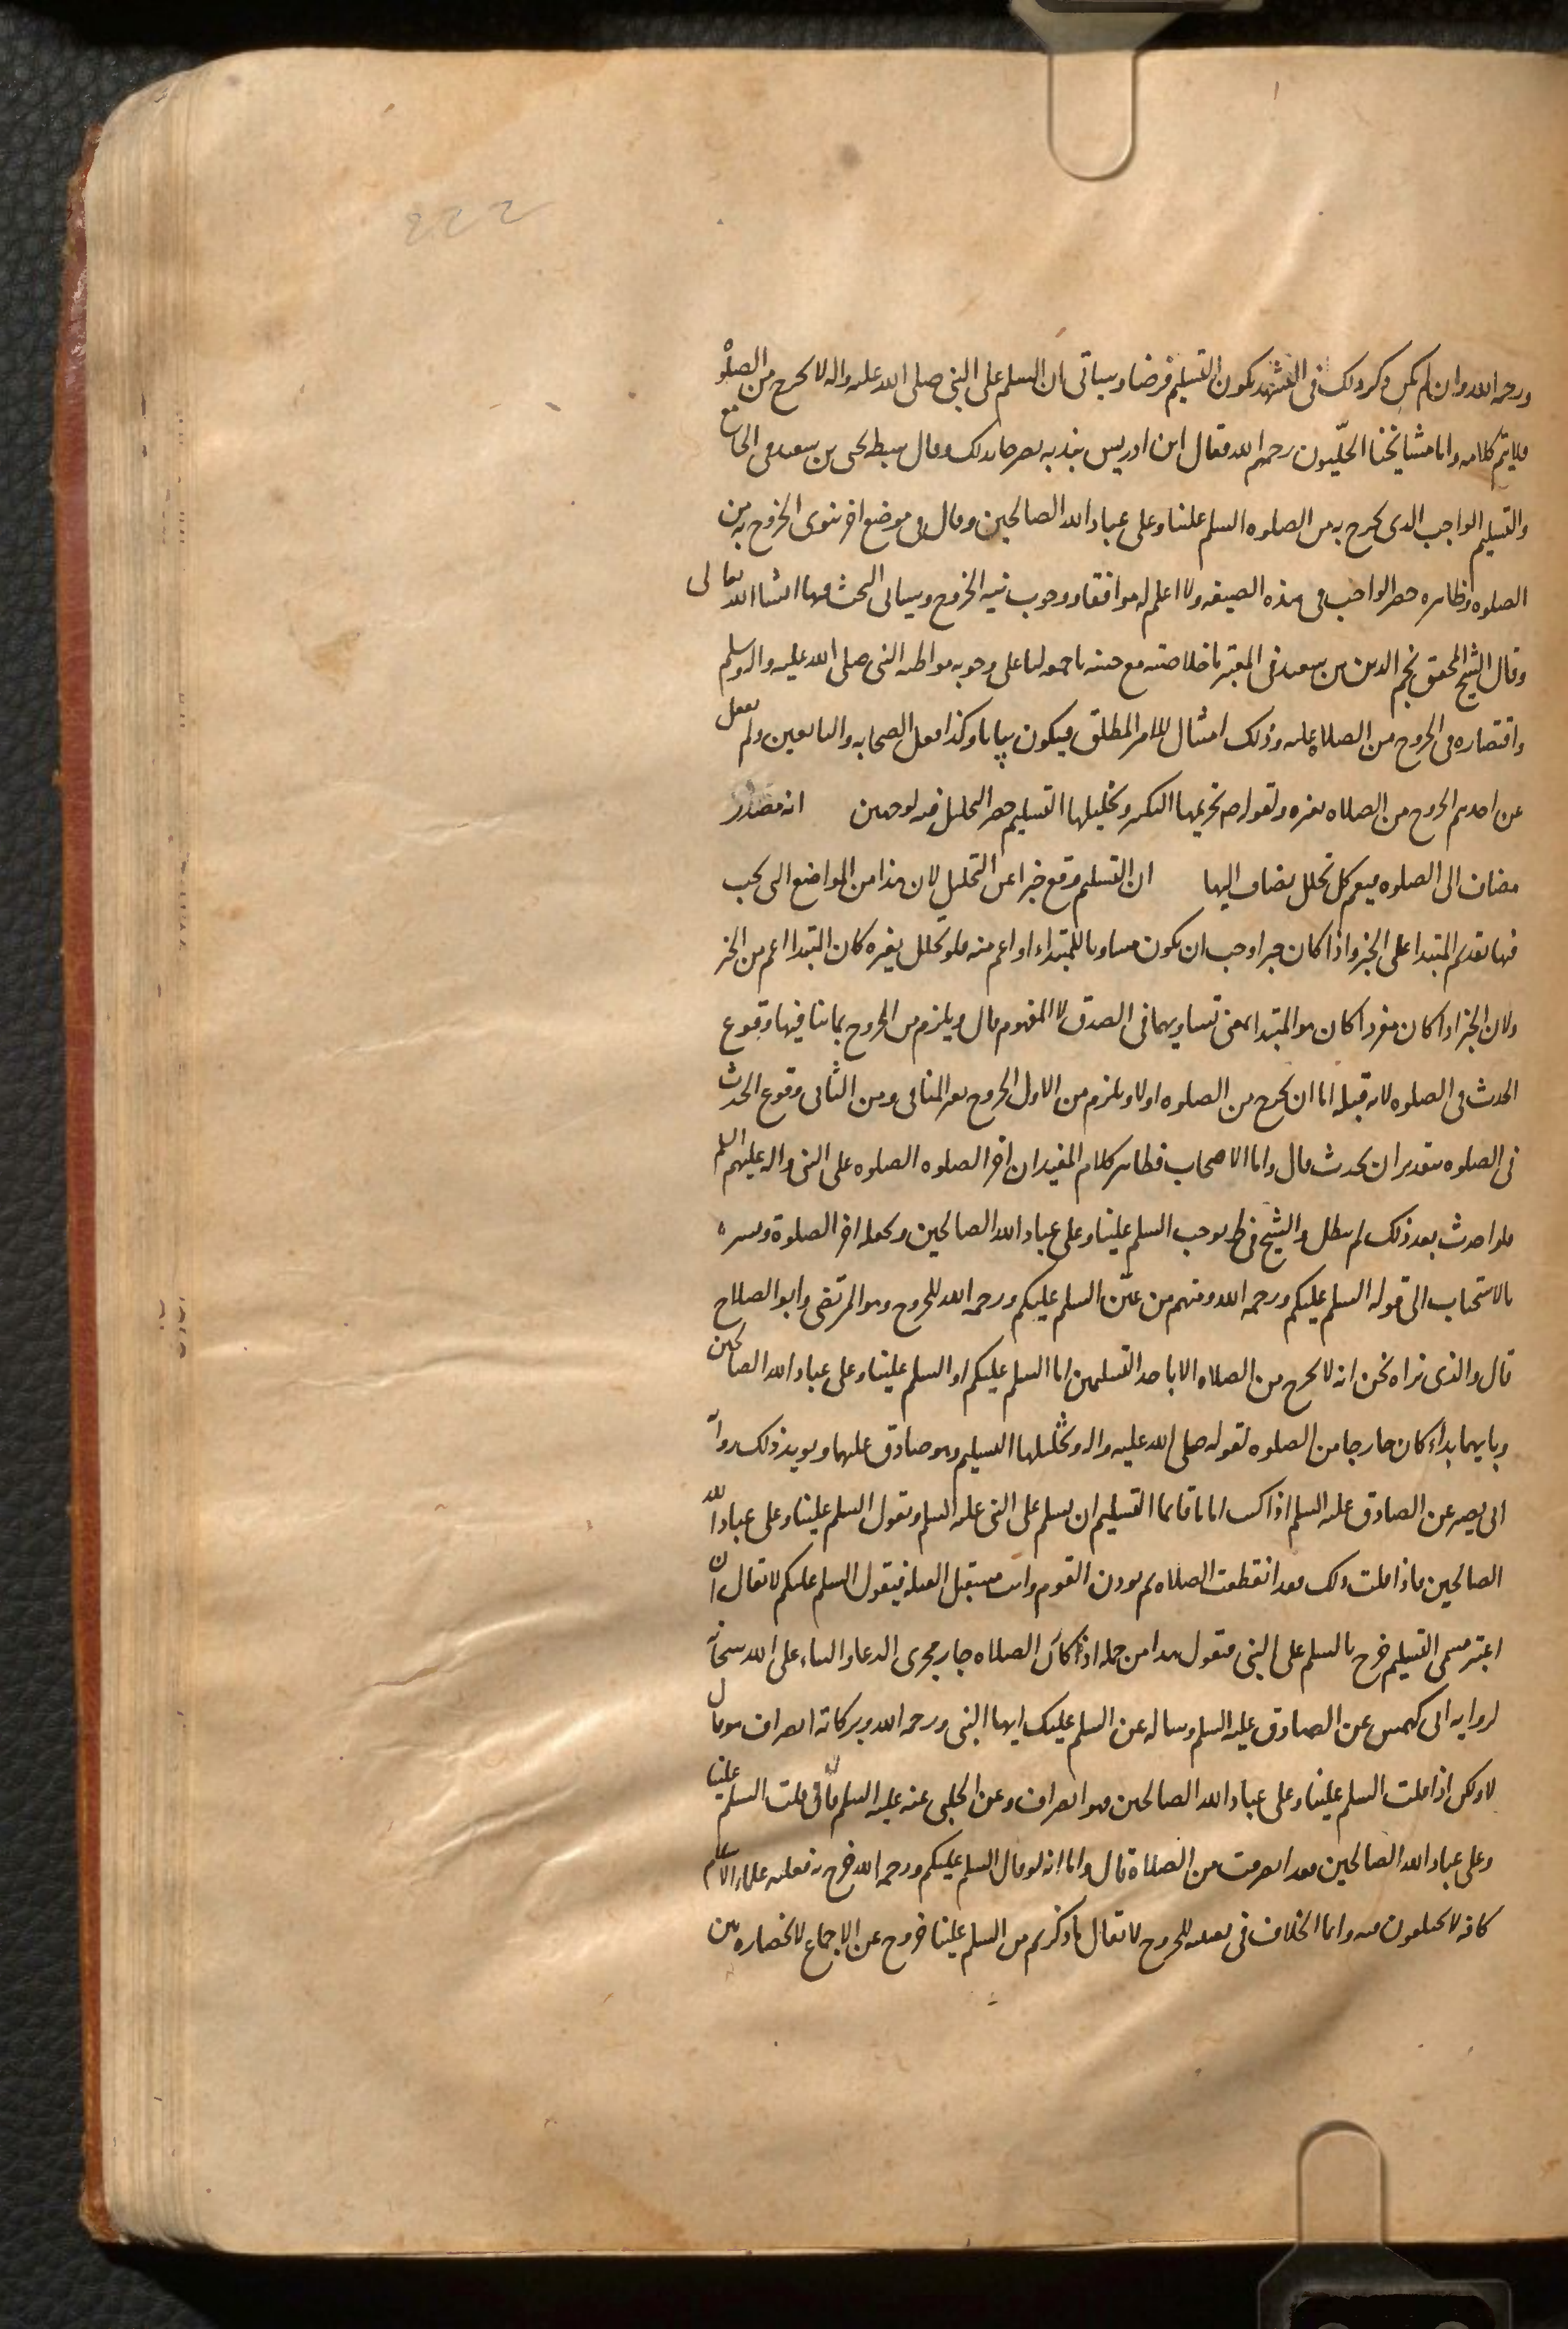 ورحمه الله وان لم يكن ذكر ذلك فى التشهد يكون التسليم فرضا وسياتى ان السلم على النبى صلى الله عليه واله لا يخرج من الصلوة
فلا يتم كلامه واما مشايخنا الحلّيون رحمهم الله فقال ابن ادريس بندبه مصرحا بذلك وقال سبطه يحيى بن سعيد فى الجامع
والتسليم الواجب الذى يخرج به من الصلوه السلم علينا وعلى عباد الله الصالحين وقال فى موضع اخر ينوى الخروج به من
الصلوه وظاهره حصر الواجب فى هذه الصيغه ولا اعلم له موافقا ووجوب نيه الخروج وسياتى البحث فيها انشا الله تعالى
وقال الشيخ المحقق نجم الدين بن سعيد فى المعتبر ما خلاصته مع حسنه ما حمولنا على وجوبه مواظبه النبى صلى الله عليه واله وسلم
واقتصاره فى الخروج من الصلاه عليه وذلك امتثال للامر المطلق فيكون بيانا وكذا فعل الصحابه والتابعين ولم ينقل
عن احدهم الخروج من الصلاه بغيره ولقوله ص تحريمها التكبير وتحليلها التسليم حصر التحليل فيه لوجهين انه مصدر
مضاف الى الصلوه فيعم كل تحلل يضاف اليها ان التسليم وقع خبرا عن التحليل لان هذا من المواضع التى يجب
فيها تقديم المبتدا على الخبر واذا كان خبرا وجب ان يكون مساويا للمبتداء او اعم منه فلو تحلل بغيره كان المبتدا اعم من الخبر
ولان الخبر اذا كان مفردا كان هو المبتدا بمعنى تساويهما فى الصدق لا المفهوم قال ويلزم من الخروج بما ينا فيها وقوع
الحدث فى الصلوه لانه قبله اما ان يخرج من الصلوه اولا ويلزم من الاول الخروج بغير المنافى ومن الثانى وقوع الحدث
فى الصلوه بتقدير ان يحدث قال واما الاصحاب فظاهر كلام المفيد ان اخر الصلوه الصلوه على النبى واله عليهم السلم
فلو احدث بعد ذلك لم تبطل والشيخ فى ط يوجب السلم علينا وعلى عباد الله الصالحين ويجعله اخر الصلوة ويسيره
بالاستحباب الى قوله السلم عليكم ورحمه الله ومنهم من عيّن السلم عليكم ورحمه الله للخروج وهو المرتضى وابو الصلاح
قال والذى نراه نحن انه لا يخرج من الصلاه الا باحد التسليمين اما السلم عليكم او السلم علينا وعلى عباد الله الصالحين
وبايهما بداء كان خارجا من الصلوه لقوله صلى الله عليه واله وتحليلها التسليم وهو صادق عليهما ويويد ذلك روايه
ابى بصير عن الصادق عليه السلم اذا كنت اماما فانما التسليم ان تسلم على النبى عليه السلم وتقول السلم علينا وعلى عباد الله
الصالحين فاذا قلت ذلك فقد انقطعت الصلاه ثم تودن القوم وانت مستقبل القبله فتقول السلم عليكم لا تقال ان
اعتبر مسمى التسليم خرج بالسلم على النبى فنقول هذا من جمله اذكار الصلاه جار مجرى الدعا والثناء على الله سبحانه
لروايه ابى كهمس عن الصادق عليه السلم وساله عن السلم عليك ايها النبى ورحمه الله وبركاته انصراف هو قال
لا ولكن اذا قلت السلم علينا وعلى عباد الله الصالحين فهو انصراف وعن الحلبى عنه عليه السلم فان قلت السلم علينا
وعلى عباد الله الصالحين فقد انصرفت من الصلاة قال واما انه لو قال السلم عليكم ورحمه الله خرج به فعليه علماء الاسلام
كافه لا يختلفون فيه وانما الخلاف فى تعينه للخروج لا تقال ما ذكرتم من السلم علينا خروج عن الاجماع لانحصاره بين